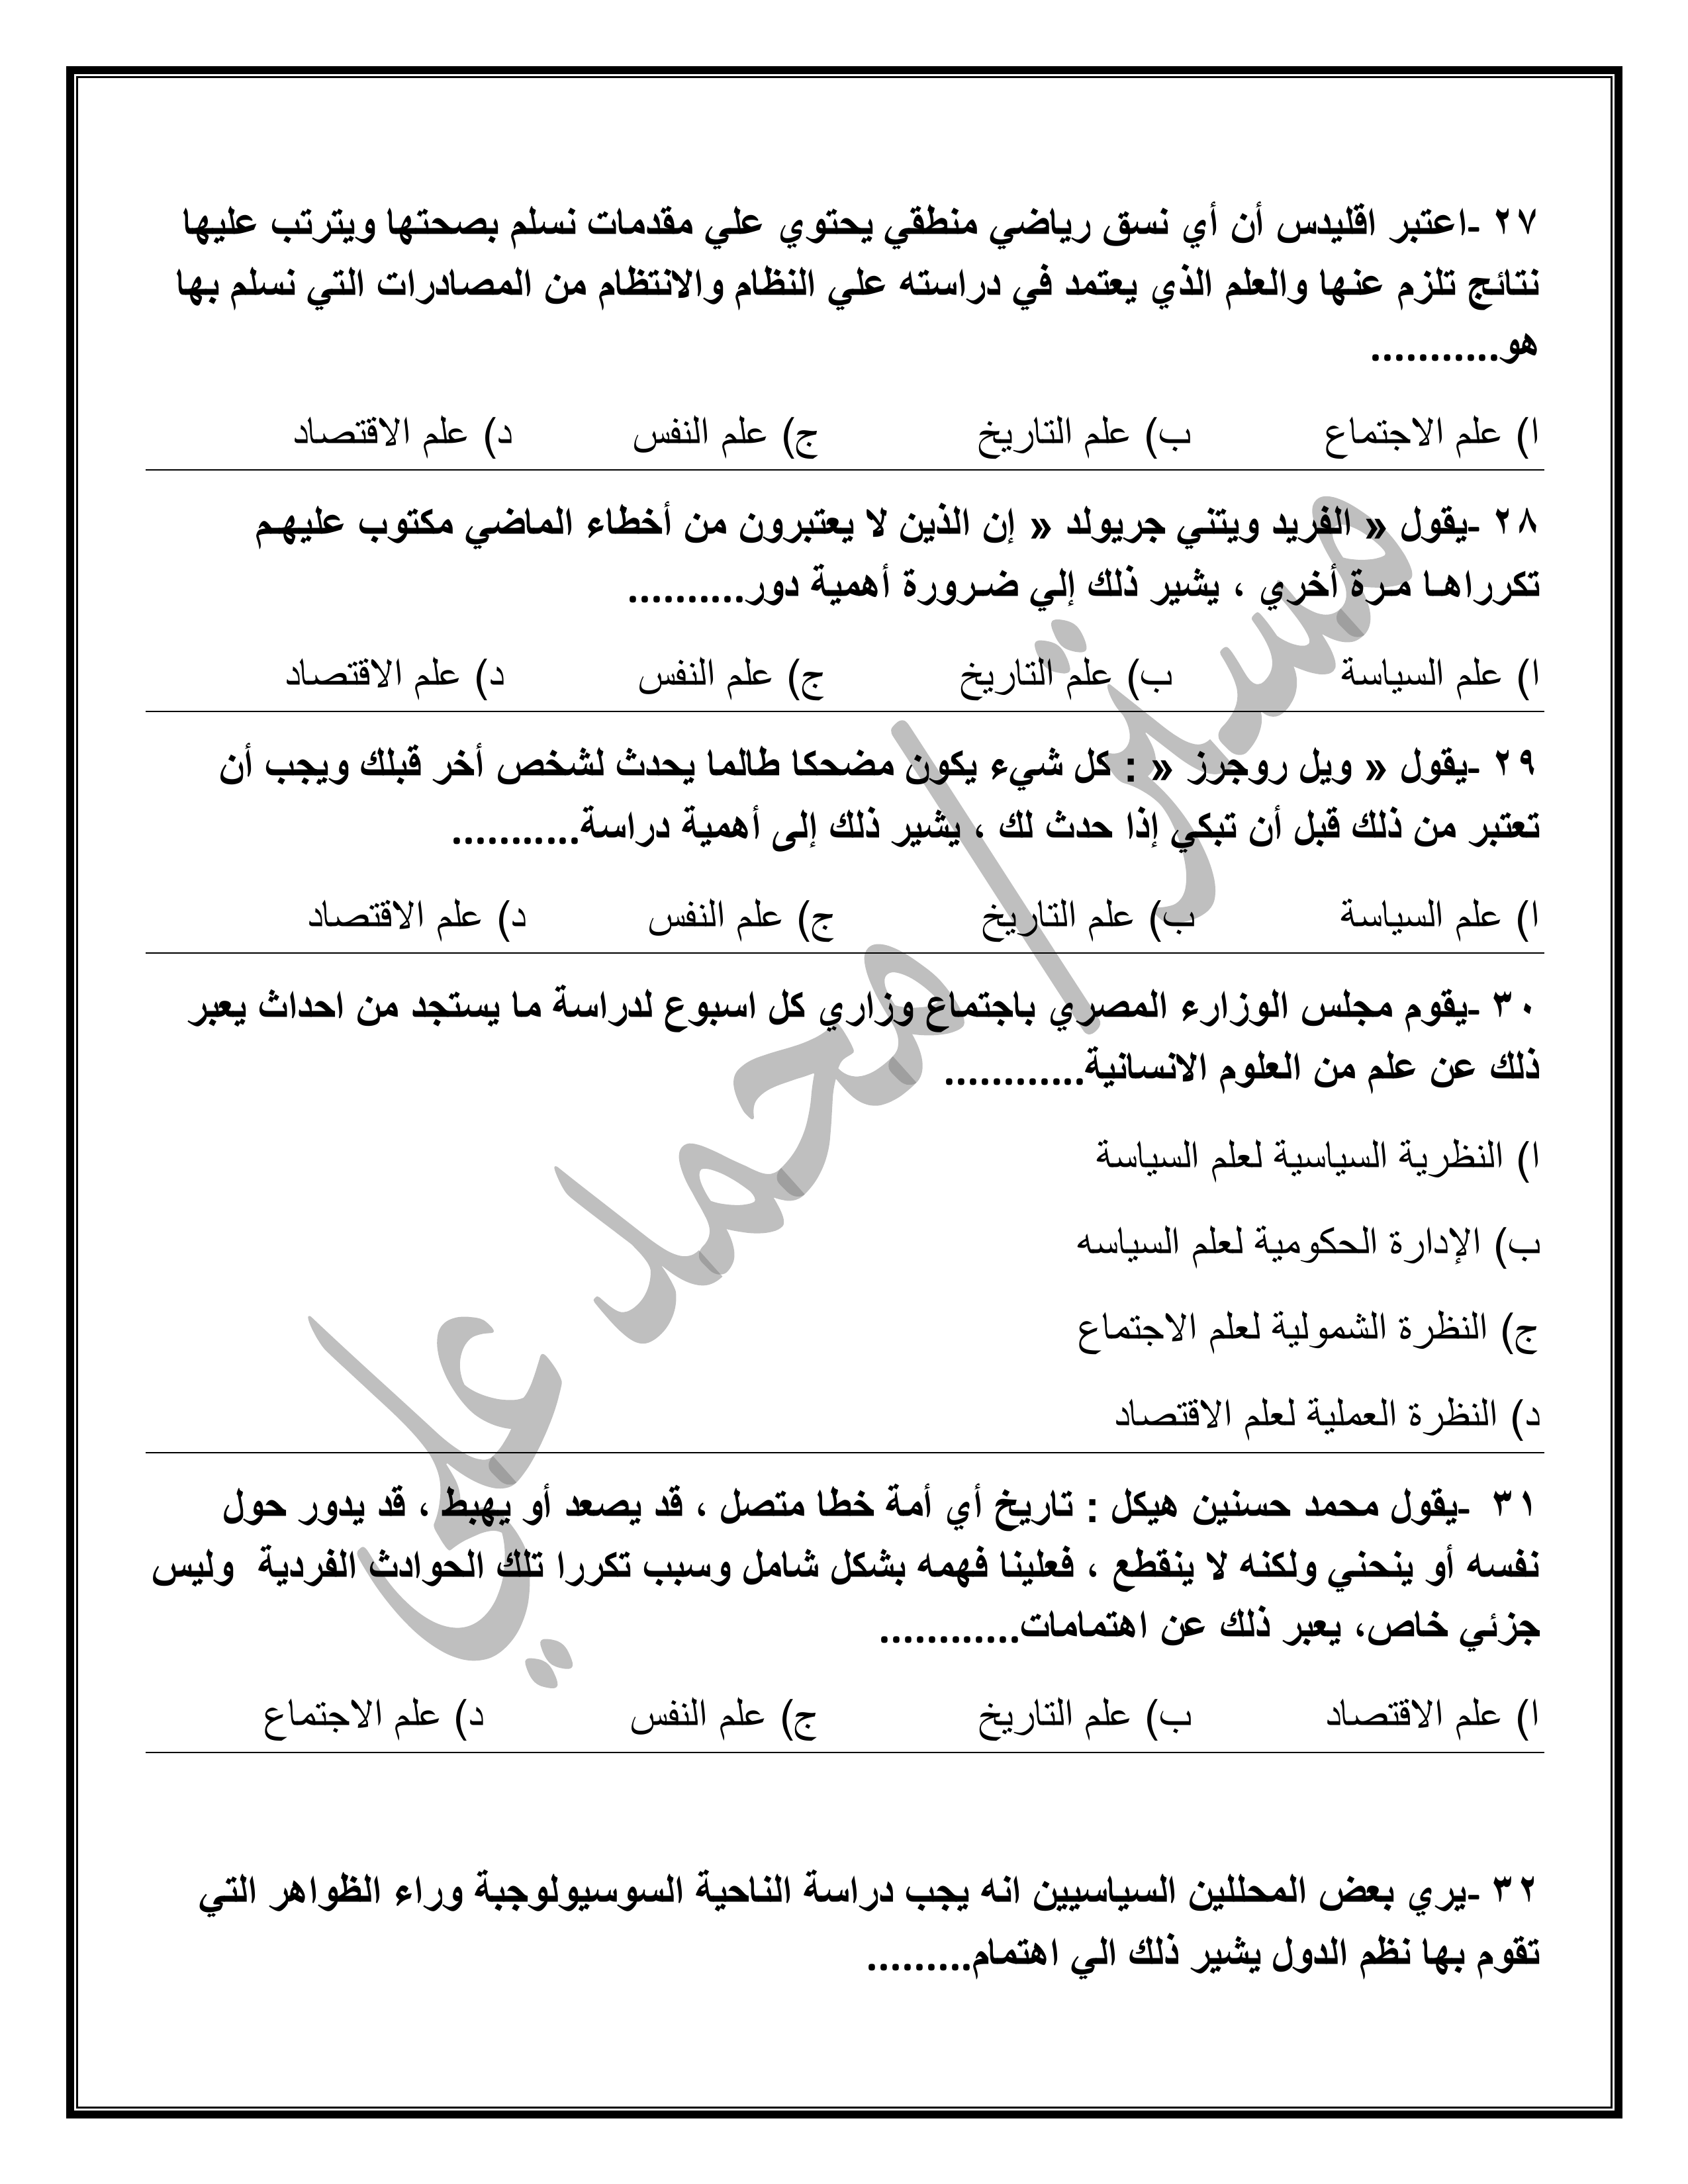 ٢٧ -اعتبر اقليدس أن أي نسق رياضي منطقي يحتوي علي مقدمات نسلم بصحتها ويترتب عليها
نتائج تلزم عنها والعلم الذي يعتمد في دراسته علي النظام والانتظام من المصادرات التي نسلم بها
هو...........
ا) علم الاجتماع ب) علم التاريخ ج) علم النفس د) علم الاقتصاد
٢٨ -يقول « الفريد ويتني جريولد « إن الذين لا يعتبرون من أخطاء الماضي مكتوب عليهـم
تكرراهـا مـرة أخري ، يشير ذلك إلي ضـرورة أهمية دور..........
ا) علم السياسة ب) علم التاريخ ج) علم النفس د) علم الاقتصاد
٢٩ -يقول « ويل روجرز « : كل شيء يكون مضحكا طالما يحدث لشخص أخر قبلك ويجب أن
تعتبر من ذلك قبل أن تبكي إذا حدث لك ، يشير ذلك إلى أهمية دراسة...........
ا) علم السياسة ب) علم التاريخ ج) علم النفس د) علم الاقتصاد
٣٠ -يقوم مجلس الوزارء المصري باجتماع وزاري كل اسبوع لدراسة ما يستجد من احداث يعبر
ذلك عن علم من العلوم الانسانية............
ا) النظرية السياسية لعلم السياسة
ب) الإدارة الحكومية لعلم السياسه
ج) النظرة الشمولية لعلم الاجتماع
د) النظرة العملية لعلم الاقتصاد
٣١ -يقول محمد حسنين هيكل : تاريخ أي أمة خطا متصل ، قد يصعد أو يهبط ، قد يدور حول
نفسه أو ينحني ولكنه لا ينقطع ، فعلينا فهمه بشكل شامل وسبب تكررا تلك الحوادث الفردية وليس
جزئي خاص، يعبر ذلك عن اهتمامات............
ا) علم الاقتصاد ب) علم التاريخ ج) علم النفس د) علم الاجتماع
٣٢ -يري بعض المحللين السياسيين انه يجب دراسة الناحية السوسيولوجبة وراء الظواهر التي
تقوم بها نظم الدول يشير ذلك الي اهتمام.........
مستر/ محمد علي